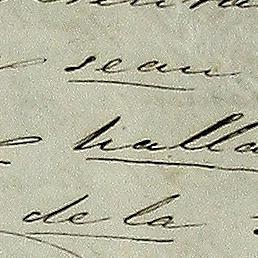 sean
halla
de la